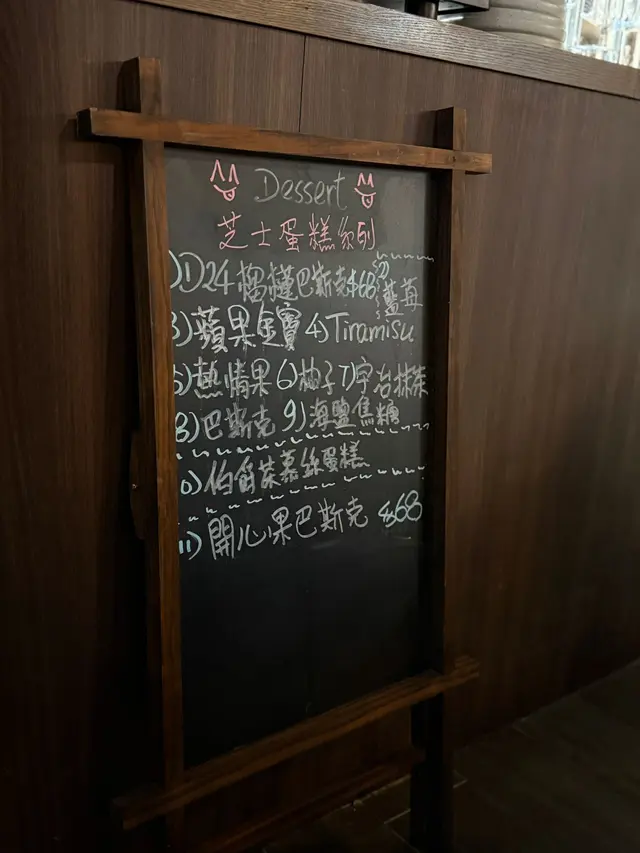 Dessert
芝士蛋糕系列
1) D24榴槤巴斯克 $68 2) 藍莓
3) 蘋果金寶 4) Tiramisu
5) 熱情果 6) 柚子 7) 宇治抹茶
8) 巴斯克 9) 海鹽焦糖
10) 伯爵茶慕絲蛋糕
11) 開心果巴斯克 $68